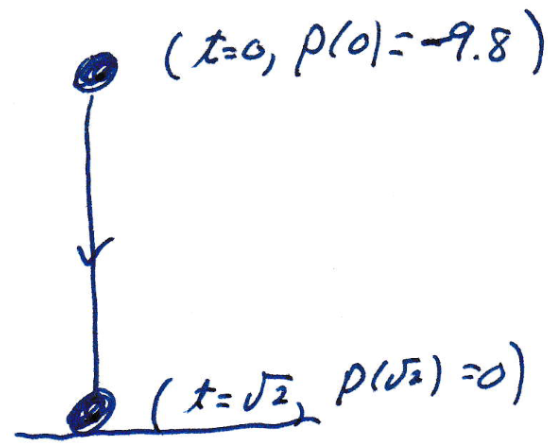 (t=0, p(0)=-9.8)
(t=√2, p(√2)=0)